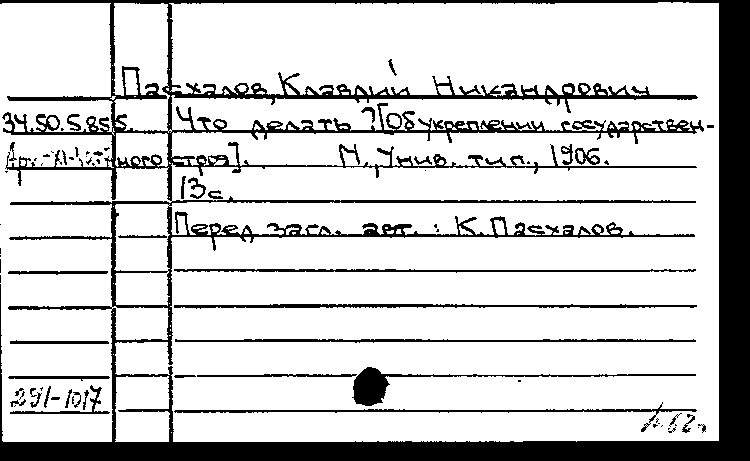 Пасхалов, Клавдий Никандрович
34.50.5.85 5. Что делать? [Об укреплении государствен-
ного строя]. М., Унив. тип., 1906.
13с.
Перед загл. авт.: К. Пасхалов.
291-1017